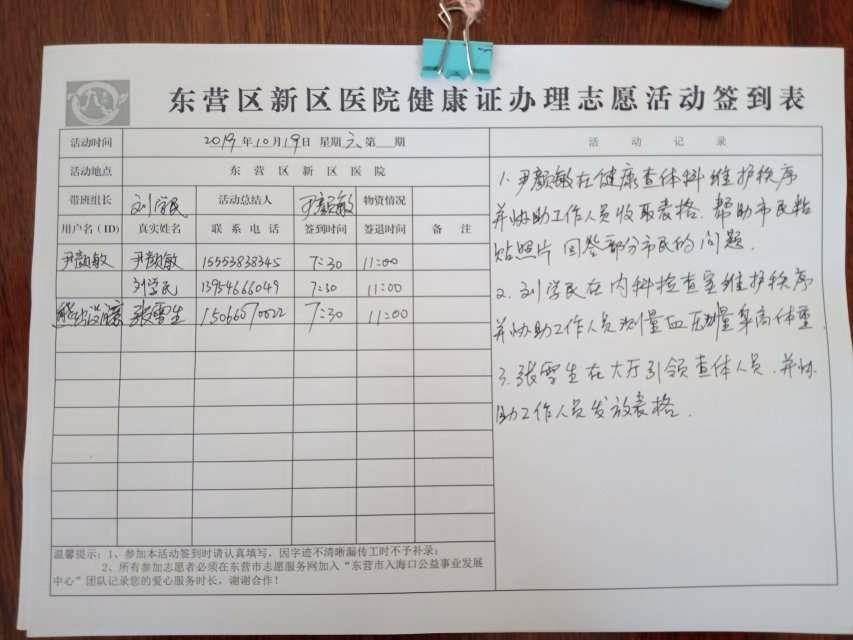 东营区新区医院健康证办理志愿活动签到表
活动时间 2019年10月19日 星期六 第 期
活动地点 东营区新区医院
带班组长 刘学民 活动总结人 尹颜敏 物资情况
用户名(ID) 真实姓名 联系电话 签到时间 签退时间 备注
尹颜敏 尹颜敏 15553838345 7:30 11:00
刘学民 13954666049 7:30 11:00
张雪生 15066070022 7:30 11:00
温馨提示:1、参加本活动签到时请认真填写,因字迹不清晰漏传工时不予补录;
2、所有参加志愿者必须在东营市志愿服务网加入“东营市入海口公益事业发展
中心”团队记录您的爱心服务时长,谢谢合作!
活动记录
1.尹颜敏在健康查体科维护秩序
并协助工作人员收取表格.帮助市民粘
贴照片 回答部分市民的问题.
2.刘学民在内科检查室维护秩序
并协助工作人员测量血压身高体重
3.张雪生在大厅引领查体人员.并协
助工作人员发放表格.